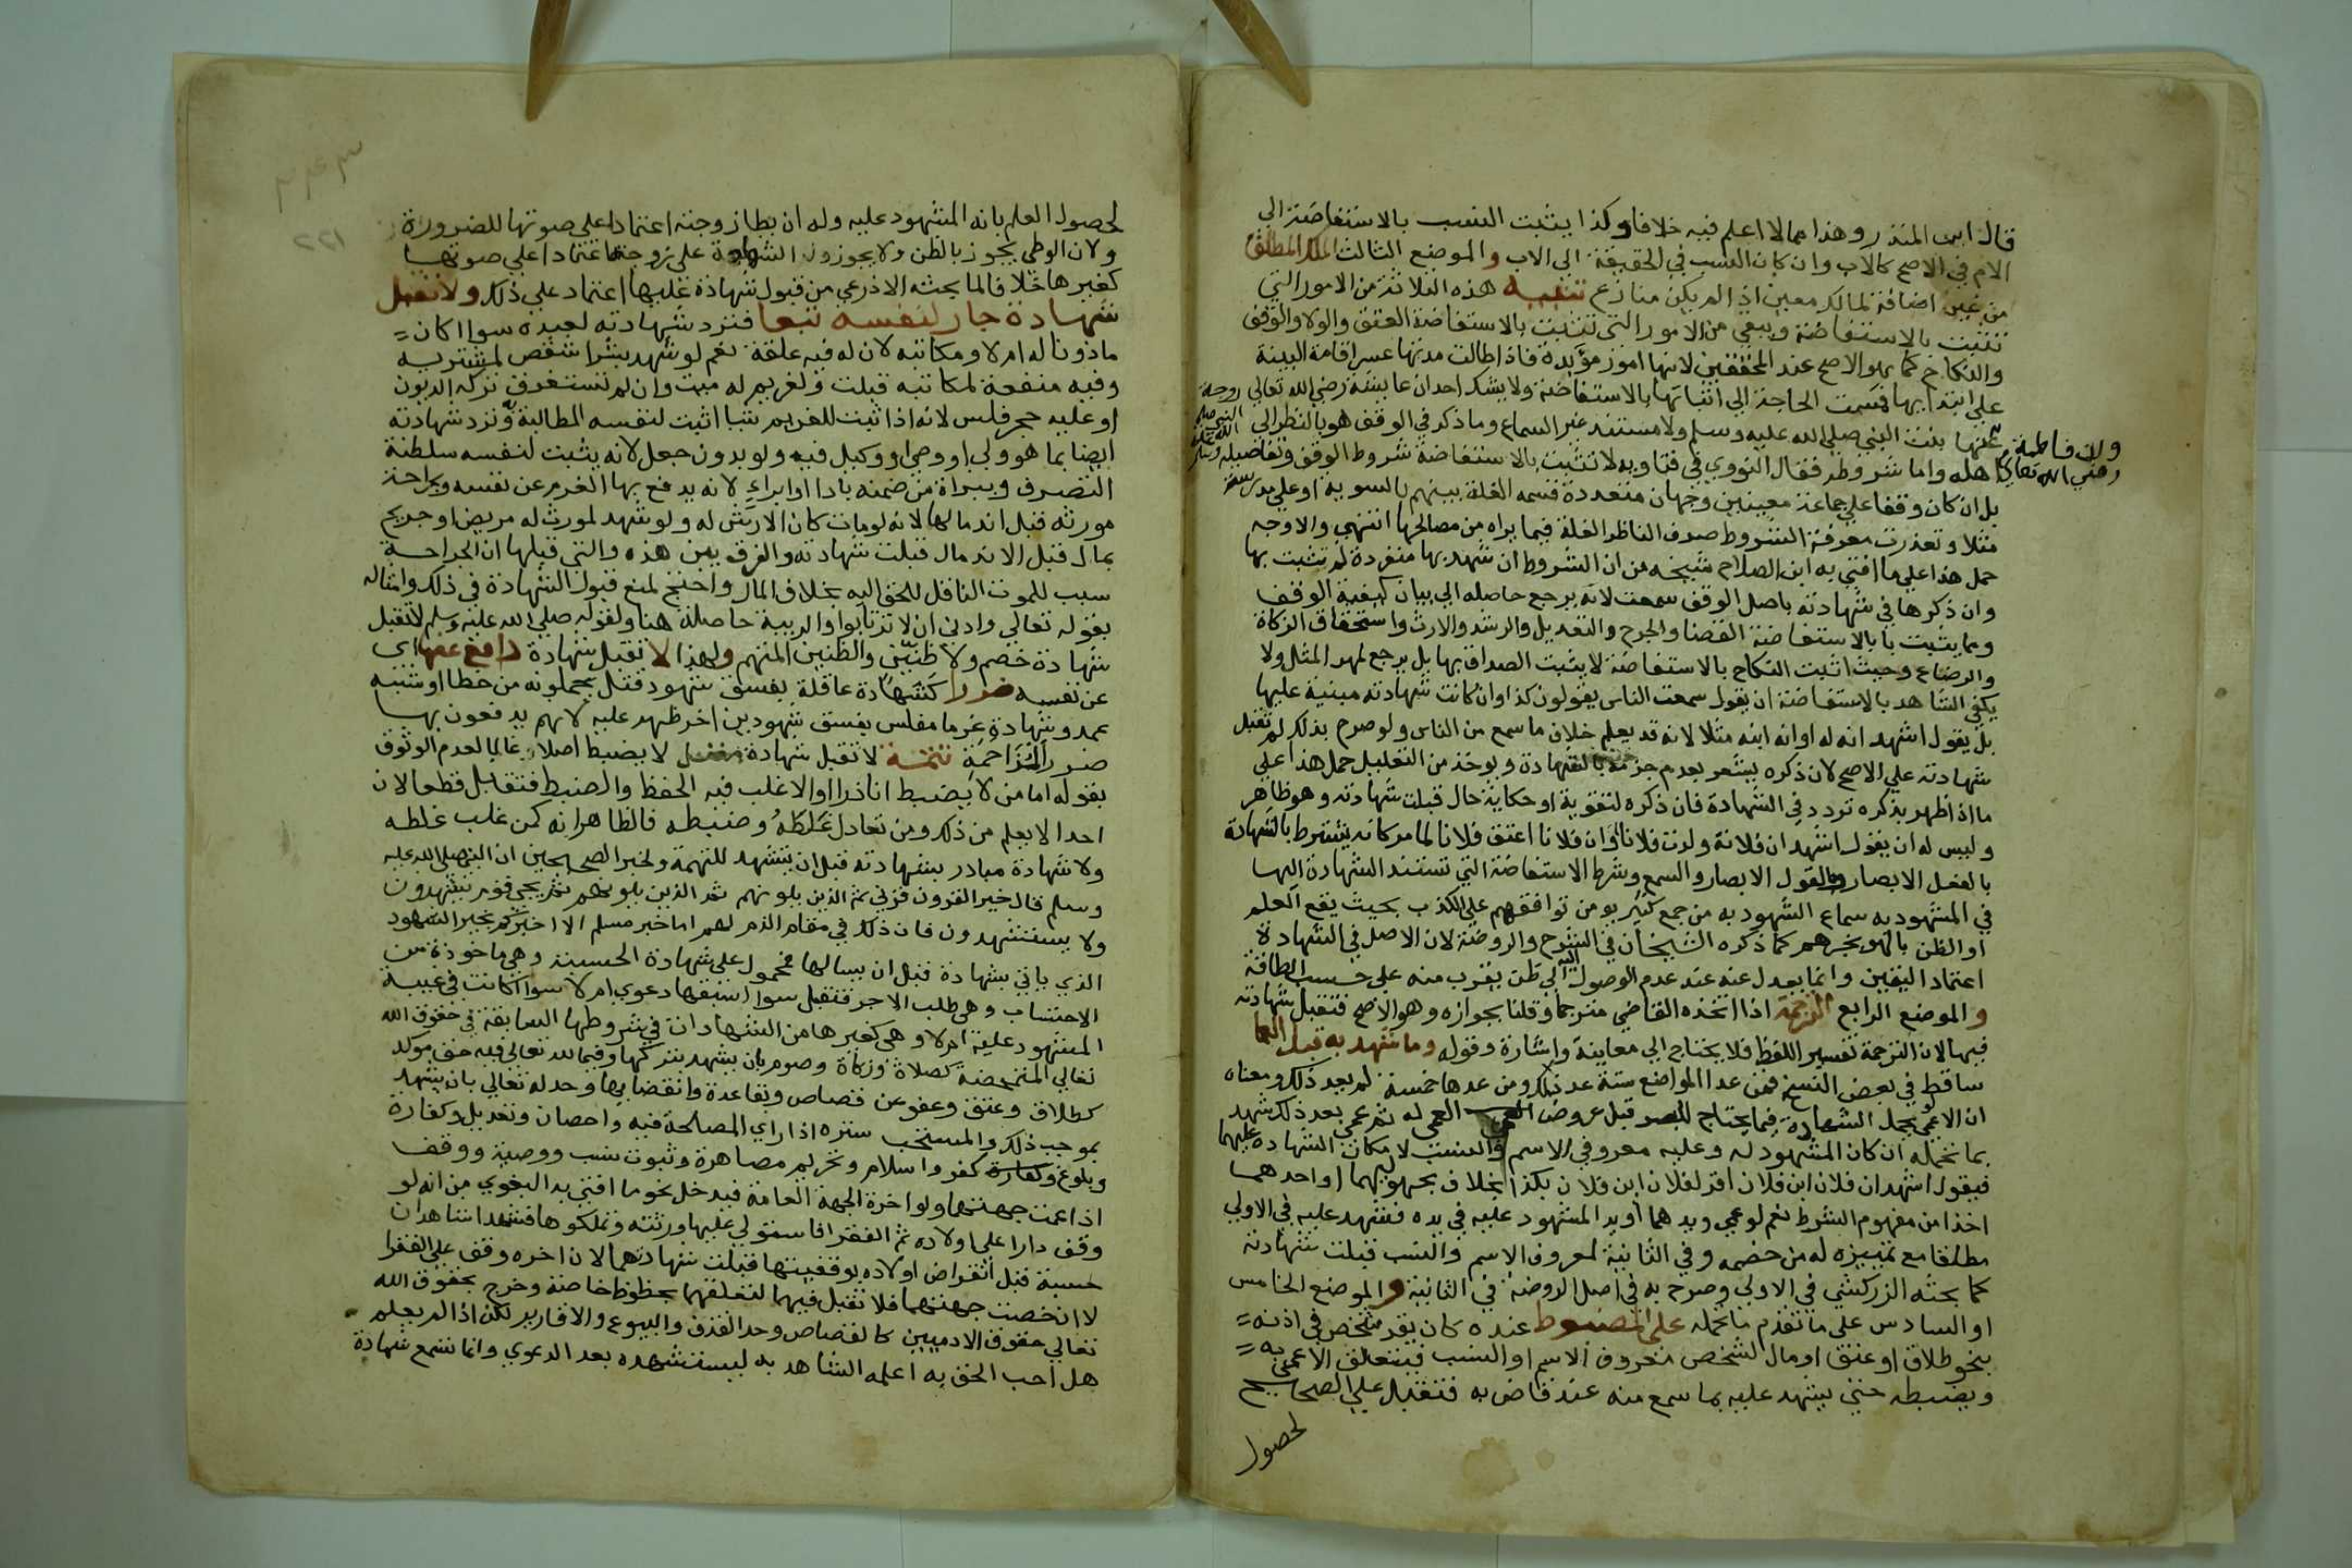 قال ابن المنذر وهذا مما لا اعلم فيه خلافا وكذا يثبت النسب بالاستفاضة الى
الام في الاصح كالاب وان كان النسب في الحقيقة الى الاب والموضع الثالث الملك المطلق
من غير اضافة لمالك معين اذا لم يكن منازع تنبيه هذه الثلاثة من الامور التي
تثبت بالاستفاضة وبقي من الامور التي تثبت بالاستفاضة العتق والولا والوقف
والنكاح كما هو الاصح عند المحققين لانها امور مؤبدة فاذا طالت مدتها عسر اقامة البينة
على ابتدايها فمست الحاجة الى اثباتها بالاستفاضة ولا يشك احد ان عايشة رضي الله تعالى زوجة
النبي صلى الله عليه وسلم
عنها بنت النبي صلى الله عليه وسلم ولا مستند غير السماع وما ذكر في الوقف هو بالنظر الى
وان فاطمة رضي الله تعالى
اصله واما شروطه فقال النووي في فتاويه لا تثبت بالاستفاضة شروط الوقف وتفاصيله
بل ان كان وقفا على جماعة معينين وجهات متعددة قسمة الغلة بينهم بالسوية او على مدرسة
مثلا وتعذرت معرفة الشروط صرف الناظر الغلة فيما يراه من مصالحها انتهى والاوجه
حمل هذا على ما افتى به ابن الصلاح شيخه من ان الشروط ان شهد بها منفردة لم تثبت بها
وان ذكرها في شهادته باصل الوقف سمعت لانه يرجع حاصله الى بيان كيفية الوقف
ومما يثبت با بالاستفاضة القضا والجرح والتعديل والرشد والارث واستحقاق الزكاة
والرضاع وحيث اثبت النكاح بالاستفاضة لا يثبت الصداق بها بل يرجع لمهر المثل ولا
يكفي الشاهد بالاستفاضة ان يقول سمعت الناس يقولون كذا وان كانت شهادته مبنية عليها
بل يقول اشهد انه له او انه ابنه مثلا لانه قد يعلم خلاف ما سمع من الناس ولو صرح بذلك لم تقبل
شهادته على الاصح لان ذكره يشعر بعدم جزمه بالشهادة ويوخذ من التعليل حمل هذا على
ما اذا ظهر بذكره تردد في الشهادة فان ذكره لتقوية او حكاية حال قبلت شهادته وهو ظاهر
وليس له ان يقول اشهد ان فلانة ولدت فلانا وان فلانا اعتق فلانا لما مر كانه يشترط بالشهادة
بالفعل الابصار وبالقول الابصار والسمع وشرط الاستفاضة التي تستند الشهادة اليها
في المشهود به سماع الشهود به من جمع كثير يومن توافقهم على الكذب بحيث يقع العلم
او الظن بالهو بخبرهم كما ذكره الشيخان في الشرح والروضة لان الاصل في الشهادة
اعتماد اليقين وانما يعدل عنه عند عدم الوصول اليه الى ظن يقرب منه على حسب الطاقة
والموضع الرابع الترجمة اذا اتخذه القاضي مترجما وقلنا بجوازه وهو الاصح فتقبل شهادته
فيها لان الترجمة تفسير اللفظ فلا يحتاج الى معاينة واشارة وقوله وما شهد به قبل العما
ساقط في بعض النسخ فمن عدا المواضع ستة عد ذلك ومن عدها خمسة لم يعد ذلك ومعناه
ان الاعمى لو تحمل الشهادة فيما يحتاج للبصر قبل عروض العمى له ثم عمي بعد ذلك شهد
بما تحمله ان كان المشهود له وعليه معروفي الاسم والنسب لامكان الشهادة عليهما
فيقول اشهد ان فلان ابن فلان اقر لفلان ابن فلان بكذا بخلاف مجهوليهما او احدهما
اخذا من مفهوم الشرط نعم لو عمي ويدهما او يد المشهود عليه في يده فشهد عليه في الاولى
مطلقا مع تمييزه له من خصمه وفي الثانية لمعروف الاسم والنسب قبلت شهادته
كما بحثه الزركشي في الاولى وصرح به في اصل الروضة في الثانية والموضع الخامس
او السادس على ما تقدم ما تحمله على المضبوط عنده كان يقر شخص في اذنه
بنحو طلاق او عتق او مال لشخص معروف الاسم او النسب فيتعلق الاعمى به
ويضبطه حتى يشهد عليه بما سمع منه عند قاض به فتقبل على الصحيح
لحصول
٢٢١
لحصول العلم بانه المشهود عليه وله ان يطا زوجته اعتمادا على صوتها للضرورة
ولان الوطي يجوز بالظن ولا يجوز ان الشهادة على زوجته اعتمادا على صوتها
كغيرها خلافا لما بحثه الاذرعي من قبول شهادة عليها اعتماد على ذلك ولا تقبل
شهادة جار لنفسه نفعا فترد شهادته لعبده سوا اكان
ماذونا له ام لا ومكاتبه لان له فيه علقة نعم لو شهد بشرا شقص لمشتريه
وفيه منفعة لمكاتبه قبلت ولغريم له ميت وان لم تستغرق تركته الديون
او عليه حجر فلس لانه اذا ثبت للغريم شيا اثبت لنفسه المطالبة به وترد شهادته
ايضا بما هو ولي او وصي او وكيل فيه ولو بدون جعل لانه يثبت لنفسه سلطنة
التصرف وببراة من ضمنه بادا او ابراء لانه يدفع بها الغرم عن نفسه وبجراحة
مورثه قبل اندمالها لانه لو مات كان الارش له ولو شهد لمورث له مريض او جريح
بمال قبل الاندمال قبلت شهادته والفرق بين هذه والتي قبلها ان الجراحة
سبب للموت الناقل للحق اليه بخلاف المال واحتج لمنع قبول الشهادة في ذلك وامثاله
بقوله تعالى وادنى ان لا ترتابوا والريبة حاصلة هنا ولقوله صلى الله عليه وسلم لا تقبل
شهادة خصم ولا ظنين والظنين المتهم ولهذا لا تقبل شهادة دافع عنها اي
عن نفسه ضررا كشهادة عاقلة بفسق شهود قتل يحملونه من خطا او شبه
عمد وشهادة غرما مفلس بفسق شهود دين اخر ظهر عليه لانهم يدفعون بها
ضرر المزاحمة تتمة لا تقبل شهادة مغفل لا يضبط اصلا او غالبا لعدم الوثوق
بقوله اما من لا يضبط نادرا او الاغلب فيه الحفظ والضبط فتقبل قطعا لان
احدا لا يعلم من ذلك ومن تعادل غلطه وضبطه فالظاهر انه كمن غلب غلطه
ولا شهادة مبادر بشهادته قبل ان يستشهد للتهمة ولخبر الصحيحين ان النبي صلى الله عليه
وسلم قال خير القرون قرني ثم الذين يلونهم ثم الذين يلونهم ثم يجي قوم يشهدون
ولا يستشهدون فان ذلك في مقام الذم لهم اما خبر مسلم الا اخبركم بخير الشهود
الذي ياتي بشهادة قبل ان يسالها فمحمول على شهادة الحسبة وهي ماخوذة من
الاحتساب وهي طلب الاجر فتقبل سوا اسبقها دعوى ام لا سوا اكانت في غيبة
المشهود عليه ام لا وهي كغيرها من الشهادات في شروطها السابقة في حقوق الله
تعالى المتمحضة كصلاة وزكاة وصوم بان يشهد بتركها وفيما لله تعالى فيه حق موكد
كطلاق وعتق وعفو عن قصاص وبقا عدة وانقضايها وحد له تعالى بان يشهد
بموجب ذلك والمستحب ستره اذا راي المصلحة فيه واحصان وتعديل وكفارة
وبلوغ وكفارة كفر واسلام وتحريم مصاهرة وثبوت نسب ووصية ووقف
اذا عمت جهتهما ولو اخرة الجهة العامة فيدخل نحو ما افتى به البغوي من انه لو
وقف دارا على اولاده ثم الفقرا فاستولى عليها ورثته وتملكوها فشهد شاهدان
حسبة قبل انقراض اولاده بوقفيتها قبلت شهادتهما لان اخره وقف على الفقرا
لا ان خصت جهتهما فلا تقبل فيهما لتعلقهما بحظوظ خاصة وخرج بحقوق الله
تعالى حقوق الادميين كالقصاص وحد القذف والبيوع والاقارير لكن اذا لم يعلم
هل احب الحق به اعلمه الشاهد به ليستشهده بعد الدعوى وانما تسمع شهادة